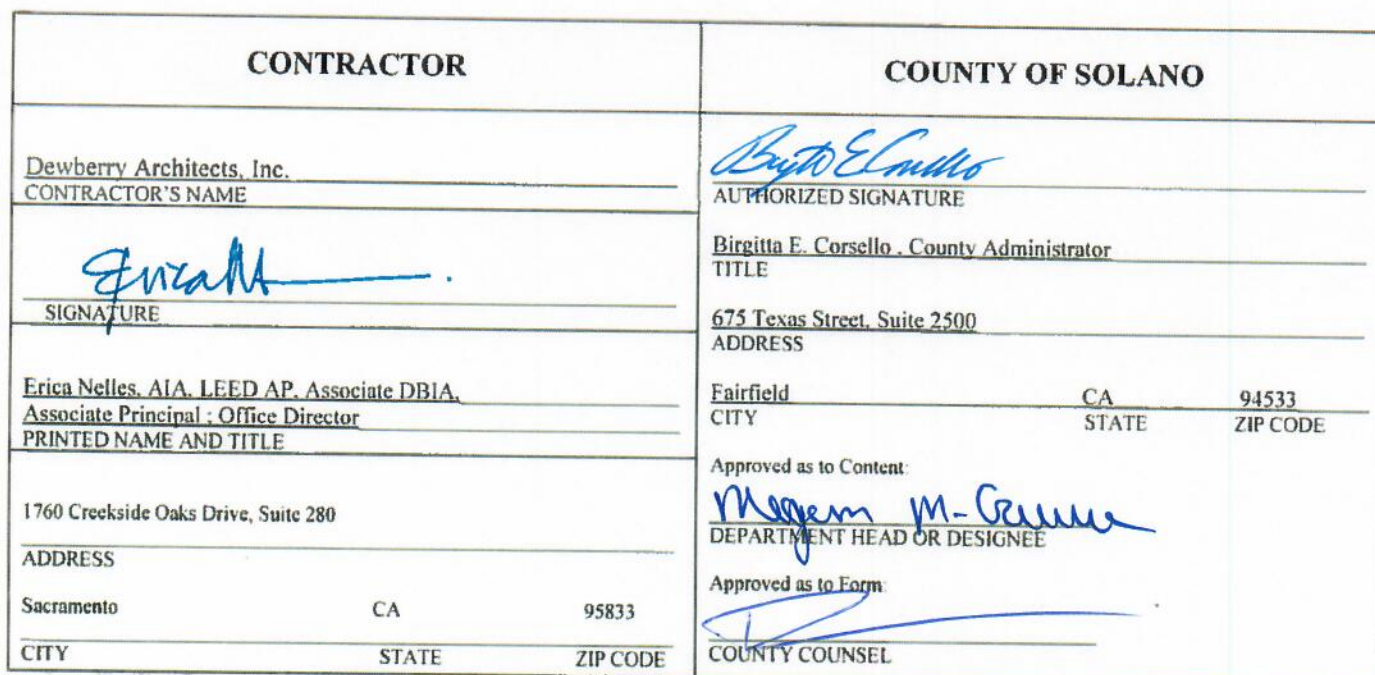 CONTRACTOR
Dewberry Architects, Inc.
CONTRACTOR'S NAME
SIGNATURE
Erica Nelles, AIA, LEED AP, Associate DBIA,
Associate Principal ; Office Director
PRINTED NAME AND TITLE
1760 Creekside Oaks Drive, Suite 280
ADDRESS
Sacramento CA 95833
CITY STATE ZIP CODE
COUNTY OF SOLANO
AUTHORIZED SIGNATURE
Birgitta E. Corsello , County Administrator
TITLE
675 Texas Street, Suite 2500
ADDRESS
Fairfield CA 94533
CITY STATE ZIP CODE
Approved as to Content:
DEPARTMENT HEAD OR DESIGNEE
Approved as to Form:
COUNTY COUNSEL